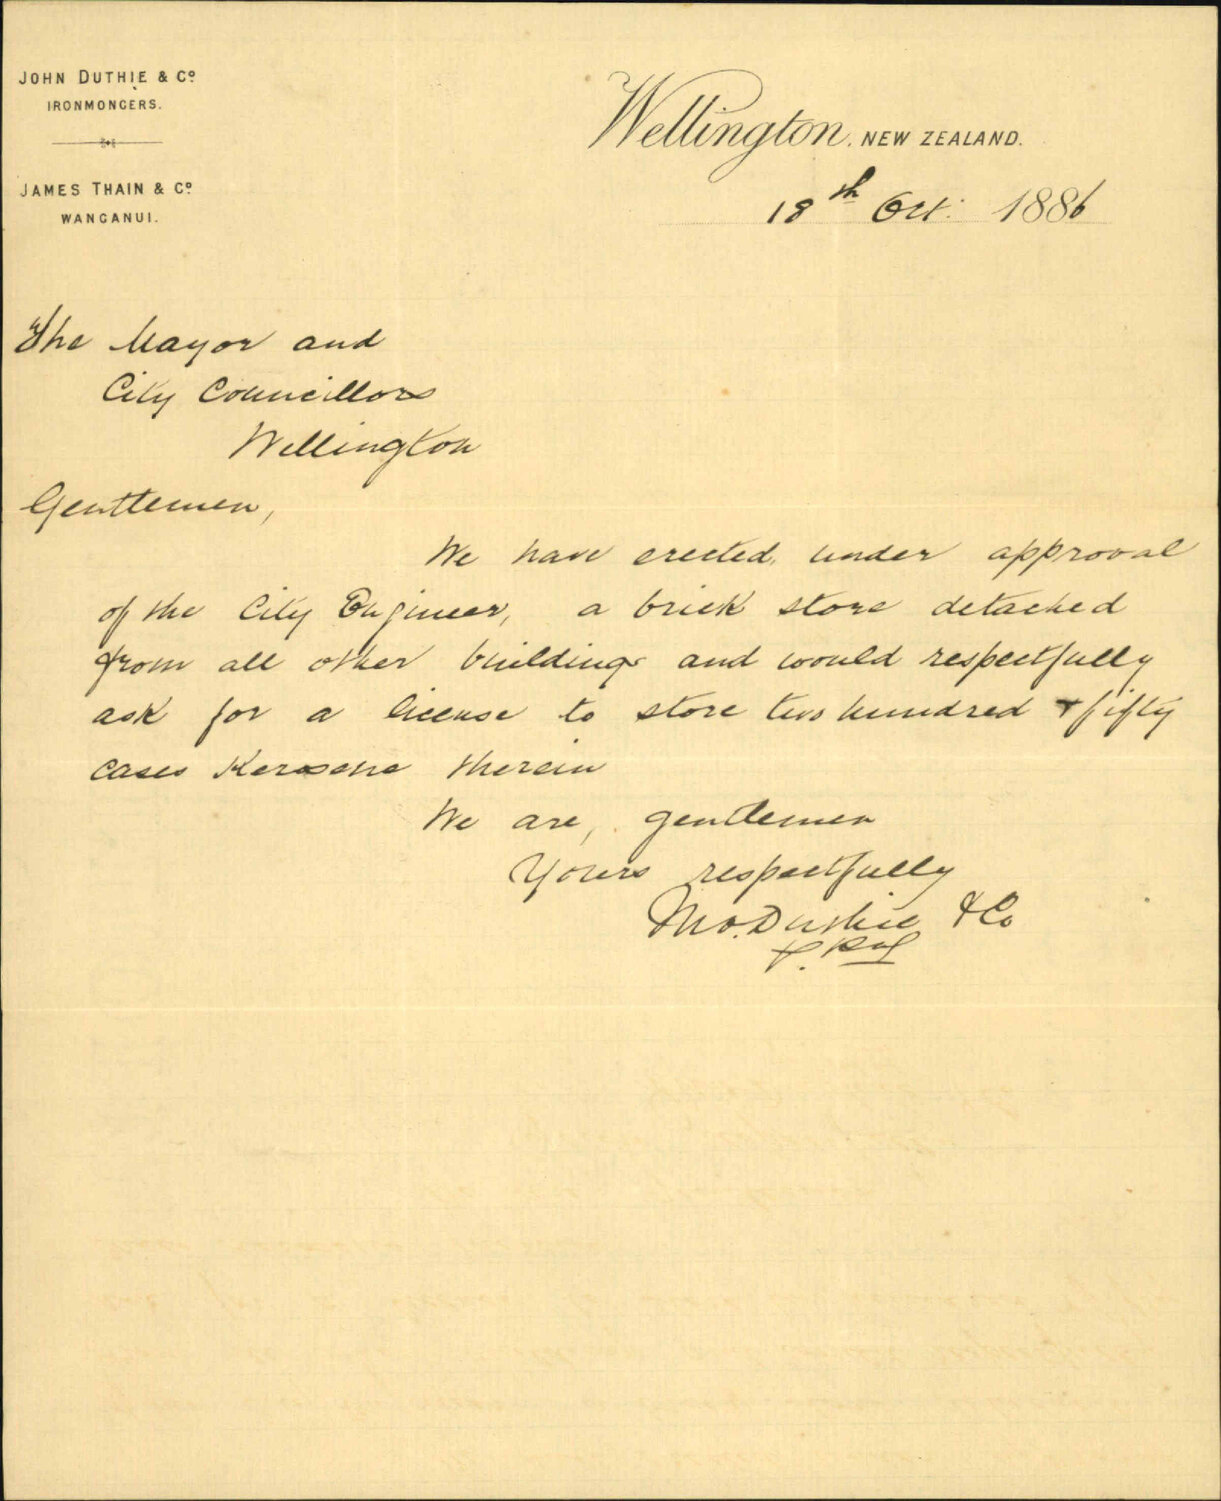 JOHN DUTHIE & Co
IRONMONGERS.
JAMES THAIN & Co
WANGANUI.
Wellington, NEW ZEALAND.
18th Oct: 1886
The Mayor and
City Councillors
Wellington
Gentlemen,
We have erected, under approval
of the City Engineer, a brick store detached
from all other buildings and would respectfully
ask for a license to store two hundred & fifty
cases Kerosene therein
We are, gentlemen
Yours respectfully
Jno. Duthie & Co